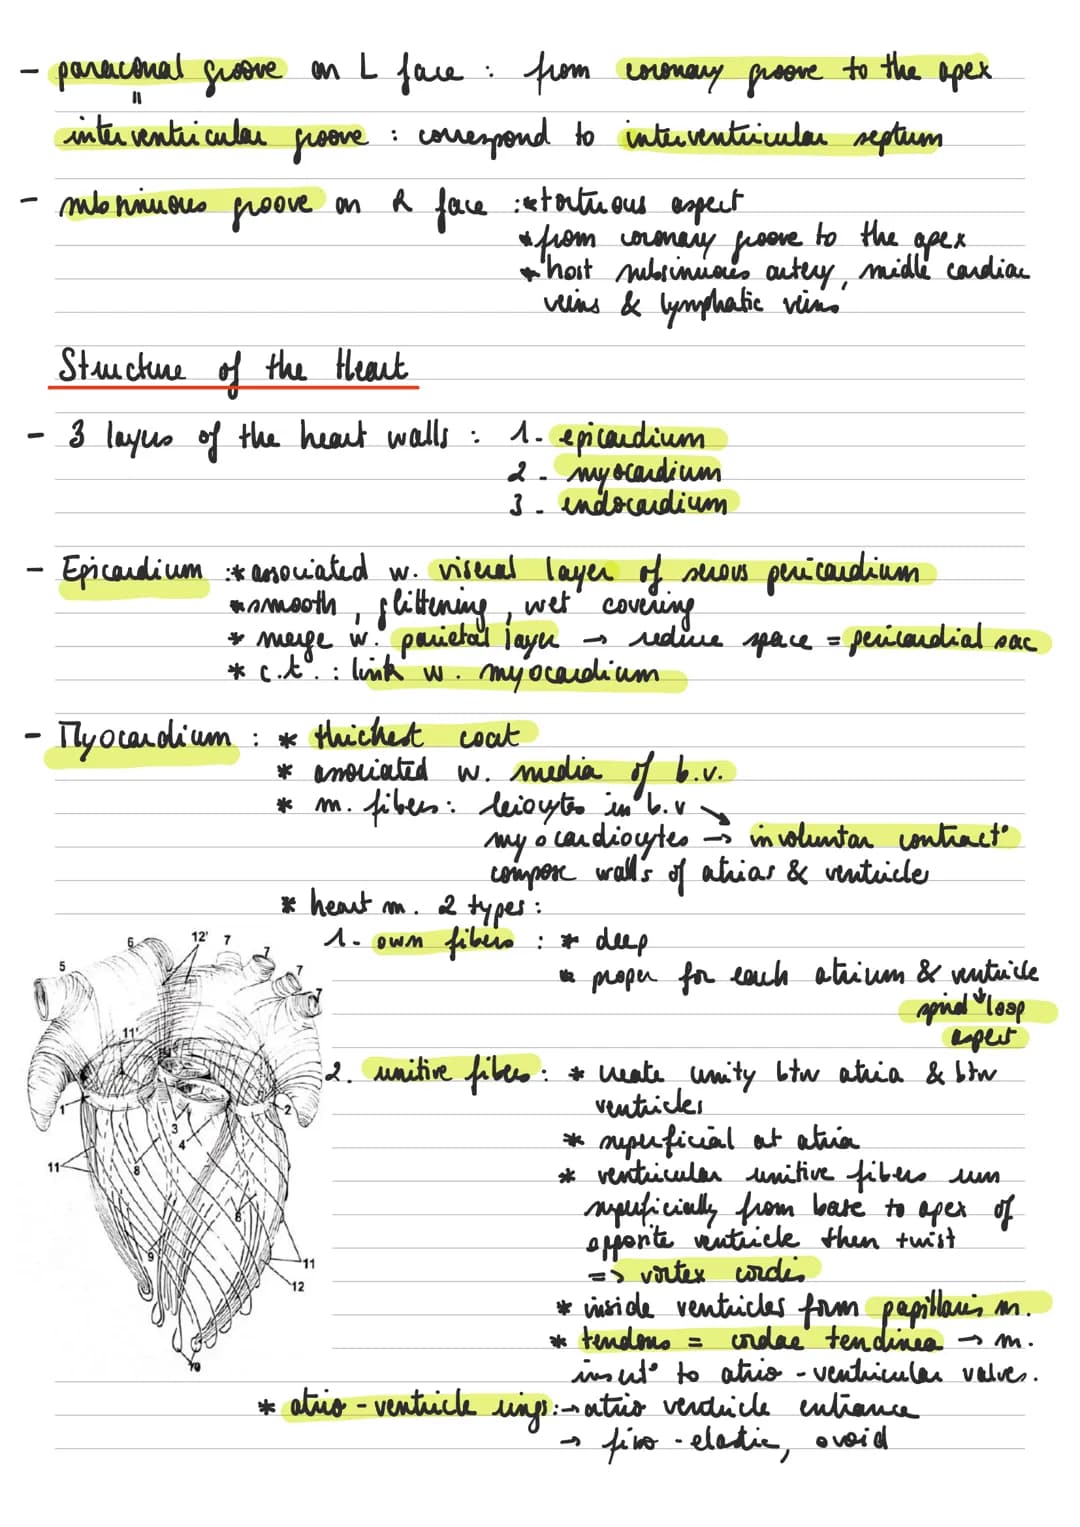 - paraconal groove on L face : from coronary groove to the apex
=
interventricular groove : correspond to interventricular septum
- subsinuous groove on R face : * tortuous aspect
* from coronary groove to the apex
* host subsinuous artery, midle cardiac
veins & lymphatic veins
Structure of the Heart
- 3 layers of the heart walls : 1- epicardium
2 - myocardium
3 - endocardium
- Epicardium : * associated w. viseral layer of serous pericardium
* smooth, glittening, wet covering
* merge w. parietal layer → reduce space = pericardial sac
* c.t. : link w. myocardium
- Myocardium : * thichest coat
* associated w. media of b.v.
* m. fibers : leiocytes in b.v →
myocardiocytes → involuntar contract°
compose walls of atrias & ventricle
* heart m. 2 types :
1- own fibers : * deep
* proper for each atrium & ventricle
↓
spiral loop
aspect
2. unitive fibers : * create unity btw atria & btw
ventricles
* superficial at atria
* ventricular unitive fibers run
superficially from base to apex of
opposite ventricle then twist
=> vortex cordis
* inside ventricles form papillaris m.
* tendons = cordae tendinea → m.
insert° to atrio-ventricular valves.
* atrio-ventricle rings : → atrio ventricle entrance
→ fivo-elastic, ovoid
6
12'
7
7
5
7
7
11'
1
2
3
4
11
8
8
9
11
12
10